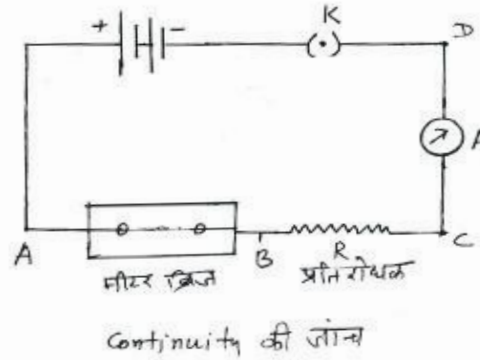 + - K
D
A
A B R C
मीटर ब्रिज प्रतिरोधक
Continuity की जांच